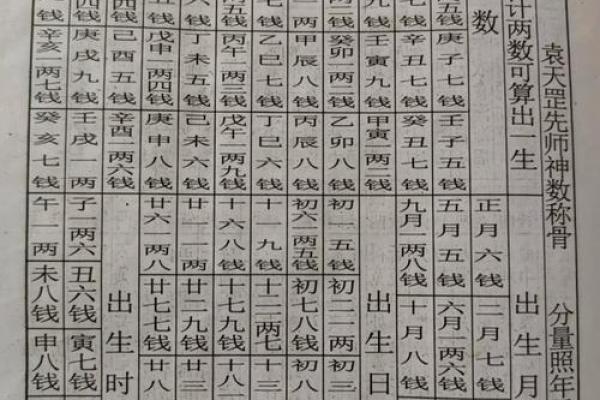 袁天罡先师神数称骨 分量照年
计两数可算出一生
数
五钱
庚子七钱
壬子五钱
七钱
辛丑七钱
癸丑七钱
九钱
壬寅九钱
甲寅一两二钱
一两
癸卯一两二钱
乙卯八钱
一两
甲辰八钱
丙辰八钱
七钱
乙巳七钱
丁巳六钱
五钱
丙午一两三钱
戊午一两九钱
钱
丁未五钱
己未六钱
五钱
戊申一两四钱
庚申八钱
四钱
己酉五钱
辛酉一两六钱
四钱
庚戌九钱
壬戌一两
钱
辛亥一两七钱
癸亥七钱
出生月
正月六钱
二月七钱
五月五钱
六月一两六钱
九月一两八钱
十月八钱
出生日
初一五钱
初二一两
初三
初六一两五钱
初七八钱
初八
十一九钱
十二一两七
十三
十六八钱
十七九钱
十八
廿一一两
廿二九钱
廿三
廿六一两八
廿七七钱
廿八
出生时
子一两六
丑六钱
寅七钱
午一两
未八钱
申八钱